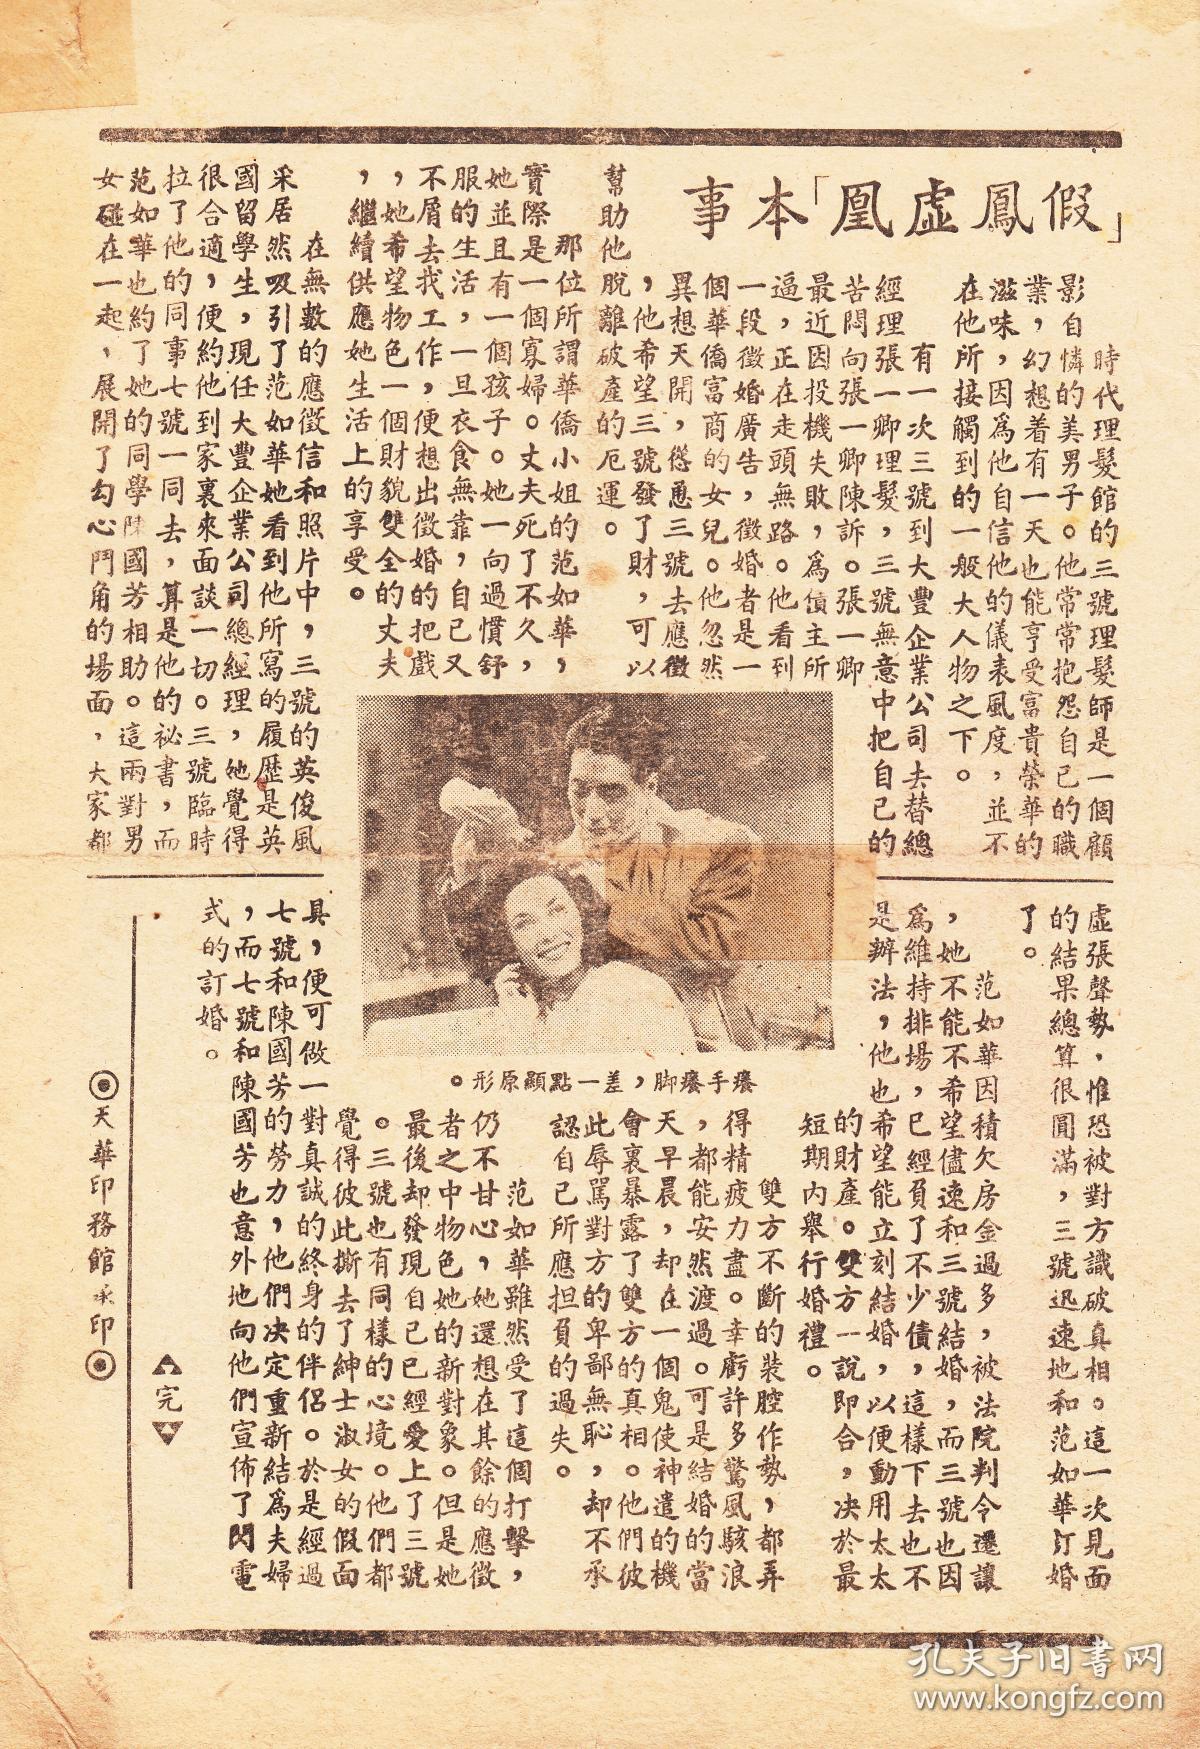 「假鳳虛凰」本事
時代理髮館的三號理髮師是一個顧
影自憐的美男子。他常常抱怨自己的職
業，幻想着有一天也能享受富貴榮華的
滋味，因爲他自信他的儀表風度，並不
在他所接觸到的一般大人物之下。
有一次三號到大豐企業公司去替總
經理張一卿理髮，三號無意中把自己的
苦悶向張一卿陳訴。張一卿
最近因投機失敗，爲債主所
逼，正在走頭無路。他看到
一段徵婚廣告，徵婚者是一
個華僑富商的女兒。他忽然
異想天開，慫恿三號去應徵
，他希望三號發了財，可以
幫助他脫離破產的厄運。
那位所謂華僑小姐的范如華，
實際是一個寡婦。丈夫死了不久，
她並且有一個孩子。她一向過慣舒
服的生活，一旦衣食無靠，自己又
不屑去找工作，便想出徵婚的把戲
，她希望物色一個財貌雙全的丈夫
，繼續供應她生活上的享受。
在無數的應徵信和照片中，三號的英俊風
采居然吸引了范如華她看到他所寫的履歷是英
國留學生，現任大豐企業公司總經理，她覺得
很合適，便約他到家裏來面談一切。三號臨時
拉了他的同事七號一同去，算是他的祕書，而
范如華也約了她的同學陳國芳相助。這兩對男
女碰在一起，展開了勾心鬥角的場面，大家都
虛張聲勢，惟恐被對方識破真相。這一次見面
的結果總算很圓滿，三號迅速地和范如華訂婚
了。
范如華因積欠房金過多，被法院判令遷讓
，她不能不希望儘速和三號結婚，而三號也因
爲維持排場，已經負了不少債，這樣下去也不
是辦法，他也希望能立刻結婚，以便動用太太
的財產。雙方一說即合，决於最
短期內舉行婚禮。
雙方不斷的裝腔作勢，都弄
得精疲力盡。幸虧許多驚風駭浪
，都能安然渡過。可是結婚的當
天早晨，却在一個鬼使神遣的機
會裏暴露了雙方的真相。他們彼
此辱罵對方的卑鄙無恥，却不承
認自己所應担負的過失。
范如華雖然受了這個打擊，
仍不甘心，她還想在其餘的應徵
者之中物色她的新對象。但是她
最後却發現自己已經愛上了三號
。三號也有同樣的心境。他們都
覺得彼此撕去了紳士淑女的假面
具，便可做一對真誠的終身的伴侶。於是經過
七號和陳國芳的勞力，他們决定重新結爲夫婦
，而七號和陳國芳也意外地向他們宣佈了閃電
式的訂婚。
癢手癢脚，差一點顯原形。
完
天華印務館承印
孔夫子旧书网
www.kongfz.com